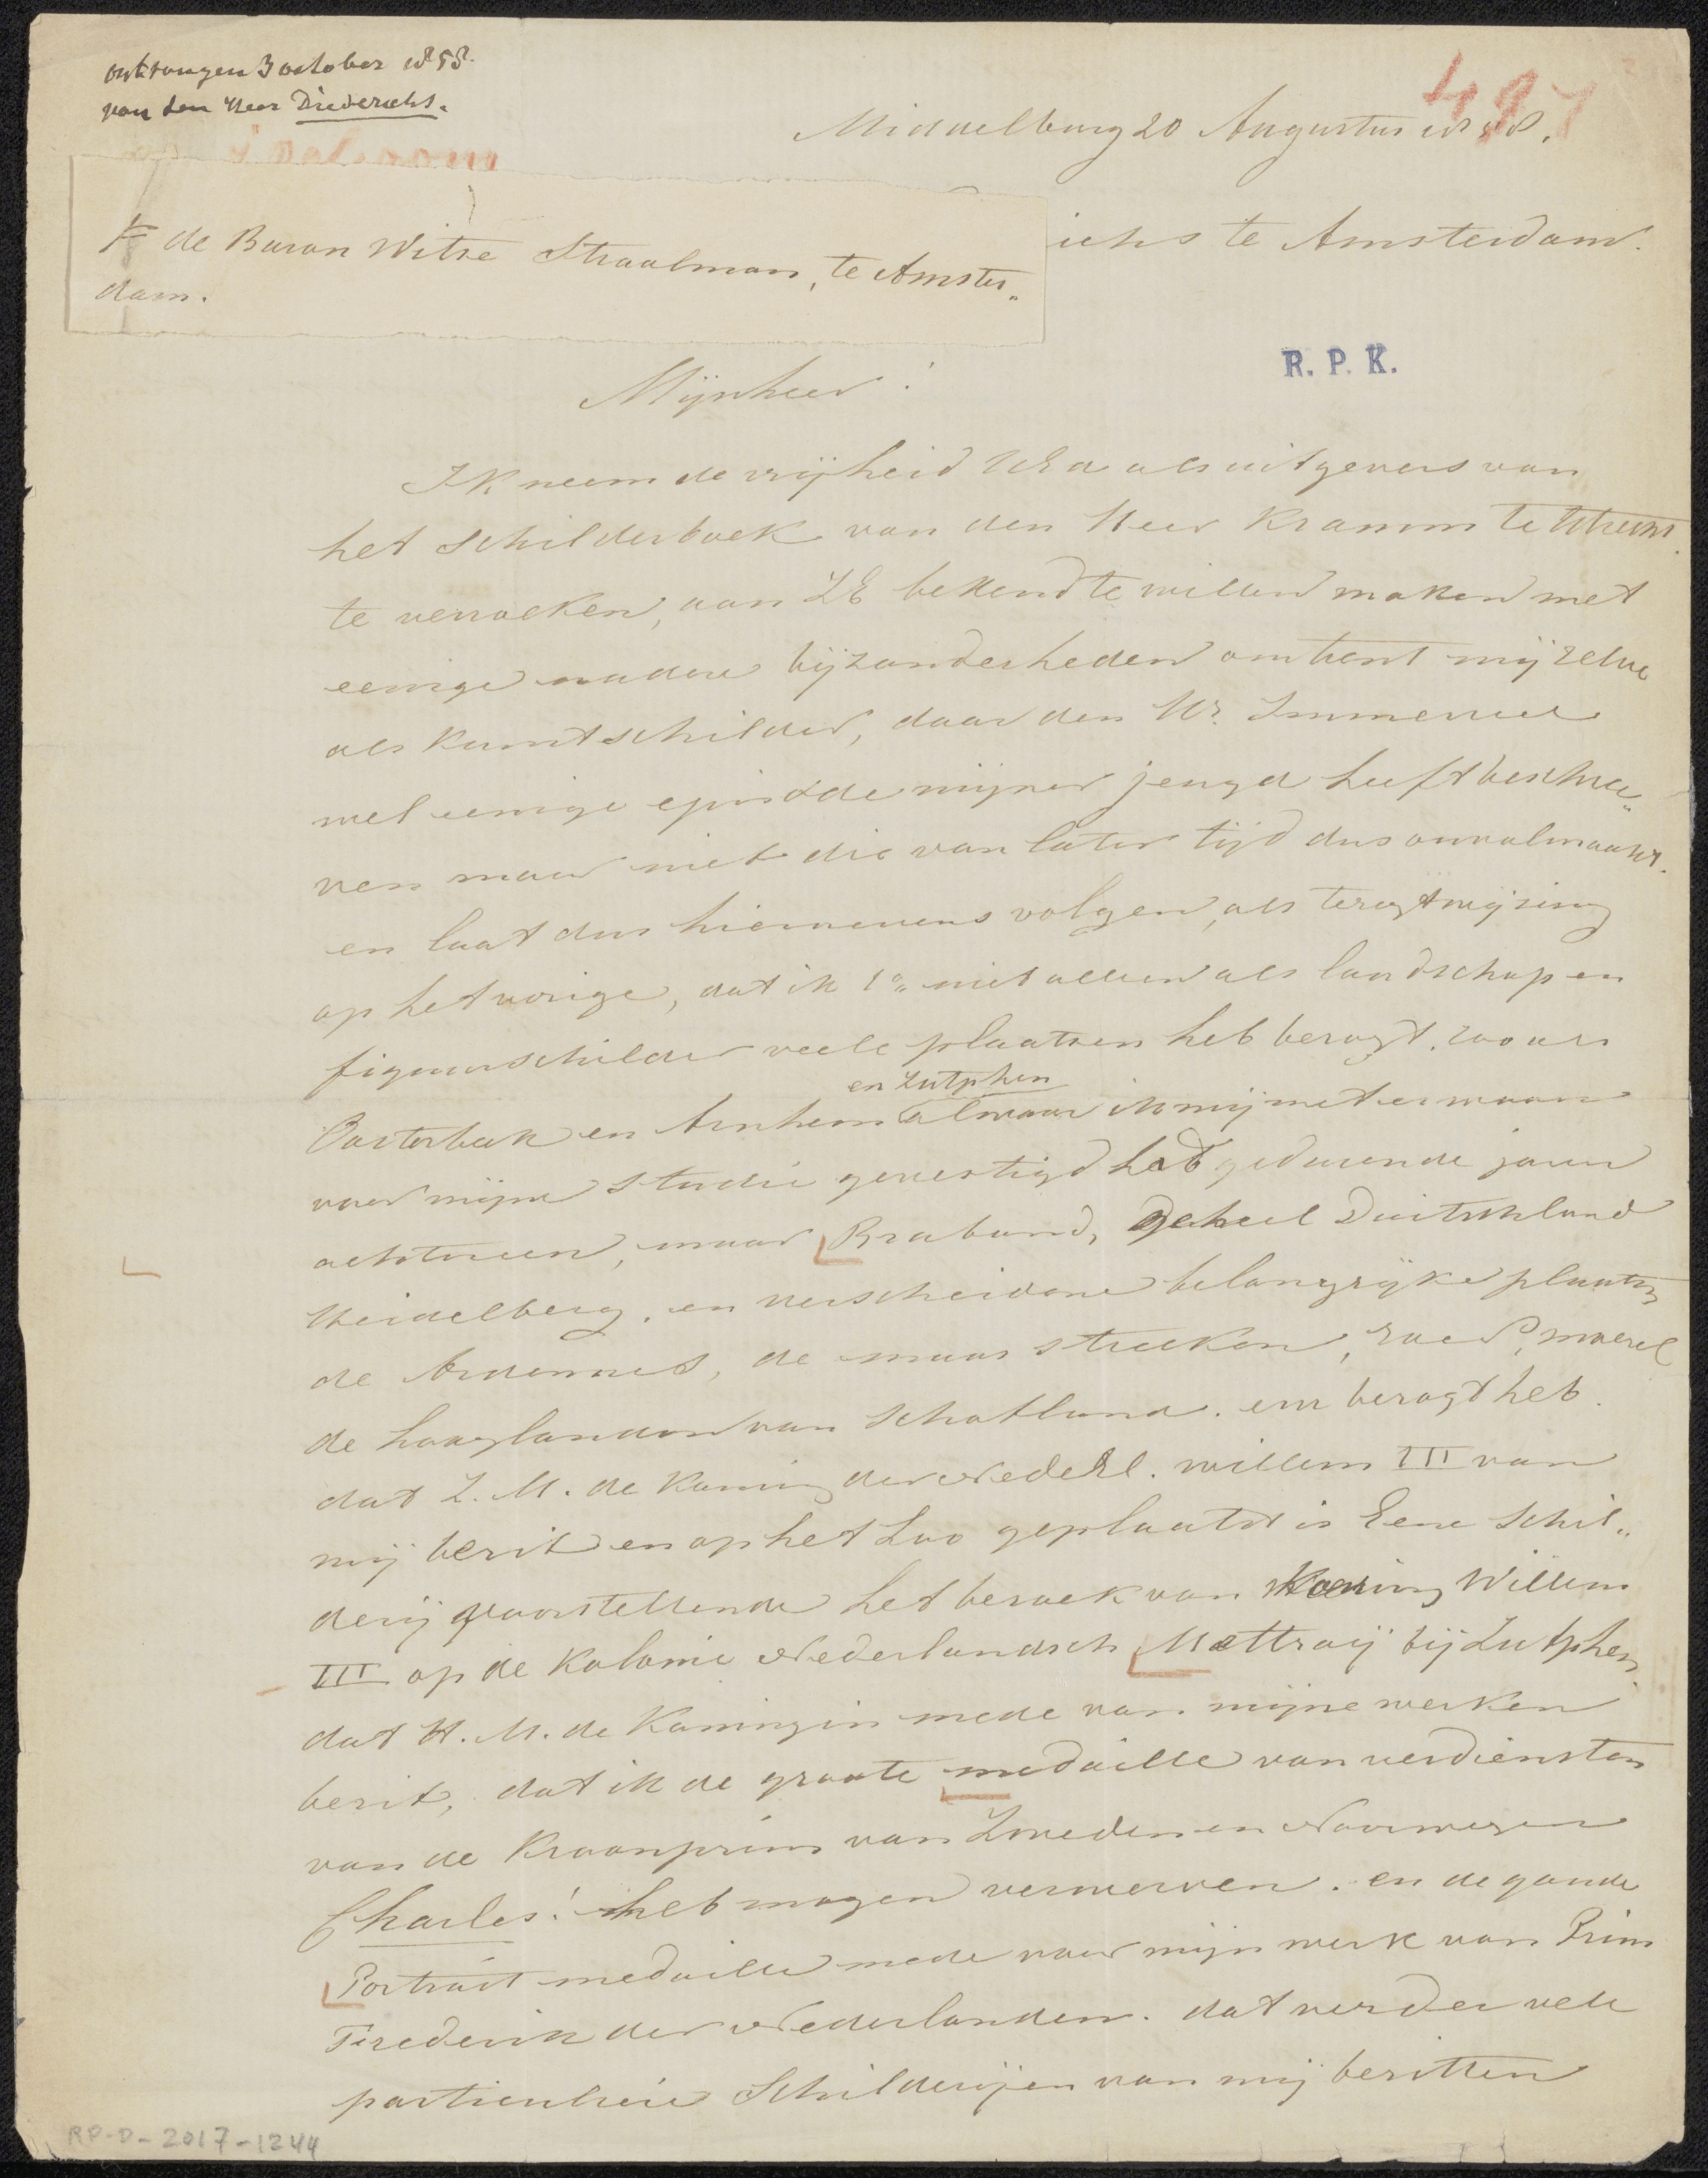 ontvangen 3 october 1858.
van den Heer Diederichs.
497
Middelburg 20 Augustus 1858.
de Baron Witse Straalman, te Amster„
dam.
ichs te Amsterdam.
R. P. K.
Mijnheer!
Ik neem de vrijheid UEd als uitgevers van
het schilderboek van den Heer Kramm te Utrecht.
te verzoeken, aan ZE bekend te willen maken met
eenige nadere bijzonderheden omtrent mij zelve
als kunstschilder, daar den Hr. Immerzeel
wel eenige episode mijner jeugd heeft beschre„
ven maar niet die van later tijd dus onvolmaakt.
en laat dus hiernevens volgen, als teregtwijzing
op het vorige, dat ik 1o„ niet alleen als landschap en
figuurschilder veele plaatsen heb bezogt. zoo als
Oosterbeek en Arnhem en Zutphen alwaar ik mij met er woon
voor mijne studie gevestigd heb gedurende jaren
achtereen, maar Braband, geheel Duitschland
Heidelberg, en verscheidene belangrijke plaatsen
de Ardennes, de maas streeken, moezel
de hooglanden van Schotland. enz bezogt heb.
dat Z. M. de Koning der Nederl. willem III van
mij bezit en op het Loo geplaatst is Eene Schil„
derij voorstellende het bezoek van Koning Willem
III op de Kolonie Nederlandsch Mettraij bij Zutphen,
dat H. M. de Koningin mede van mijne werken
bezit, dat ik de groote medaille van verdiensten
van de Kroonprins van Zweden en Noorwegen
Charles! heb mogen verwerven. en de goude
Portrait medaille mede voor mijn werk van Prins
Frederik der Nederlanden. dat verder vele
particuliere Schilderijen van mij bezitten
RP-D-2017-1244